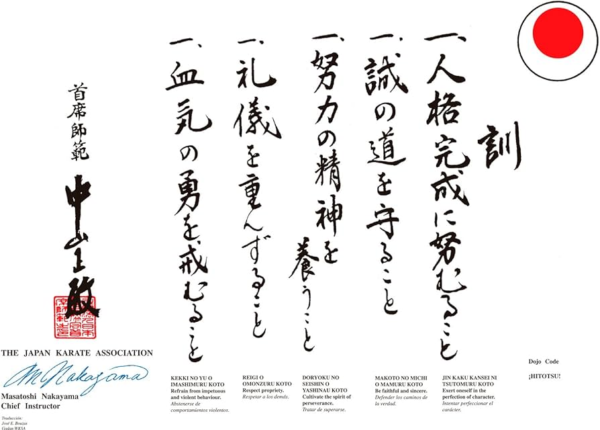 訓
一、人格完成に努むること
一、誠の道を守ること
一、努力の精神を養うこと
一、礼儀を重んずること
一、血気の勇を戒むること
首席師範
中山正敏
THE JAPAN KARATE ASSOCIATION
M Nakayama
Masatoshi Nakayama
Chief Instructor
Traducción
KEKKI NO YU O
IMASHIMURU KOTO
Refrain from impetuous
and violent behaviour.
Abstenerse de
comportamientos violentos.
REIGI O
OMONZURU KOTO
Respect propriety.
Respetar a los demás.
DORYOKU NO
SEISHIN O
YASHINAU KOTO
Cultivate the spirit of
perseverance.
Tratar de superarse.
MAKOTO NO MICHI
O MAMURU KOTO
Be faithful and sincere.
Defender los caminos de
la verdad.
JIN KAKU KANSEI NI
TSUTOMURU KOTO
Exert oneself in the
perfection of character.
Intentar perfeccionar el
carácter.
Dojo Code
¡HITOTSU!